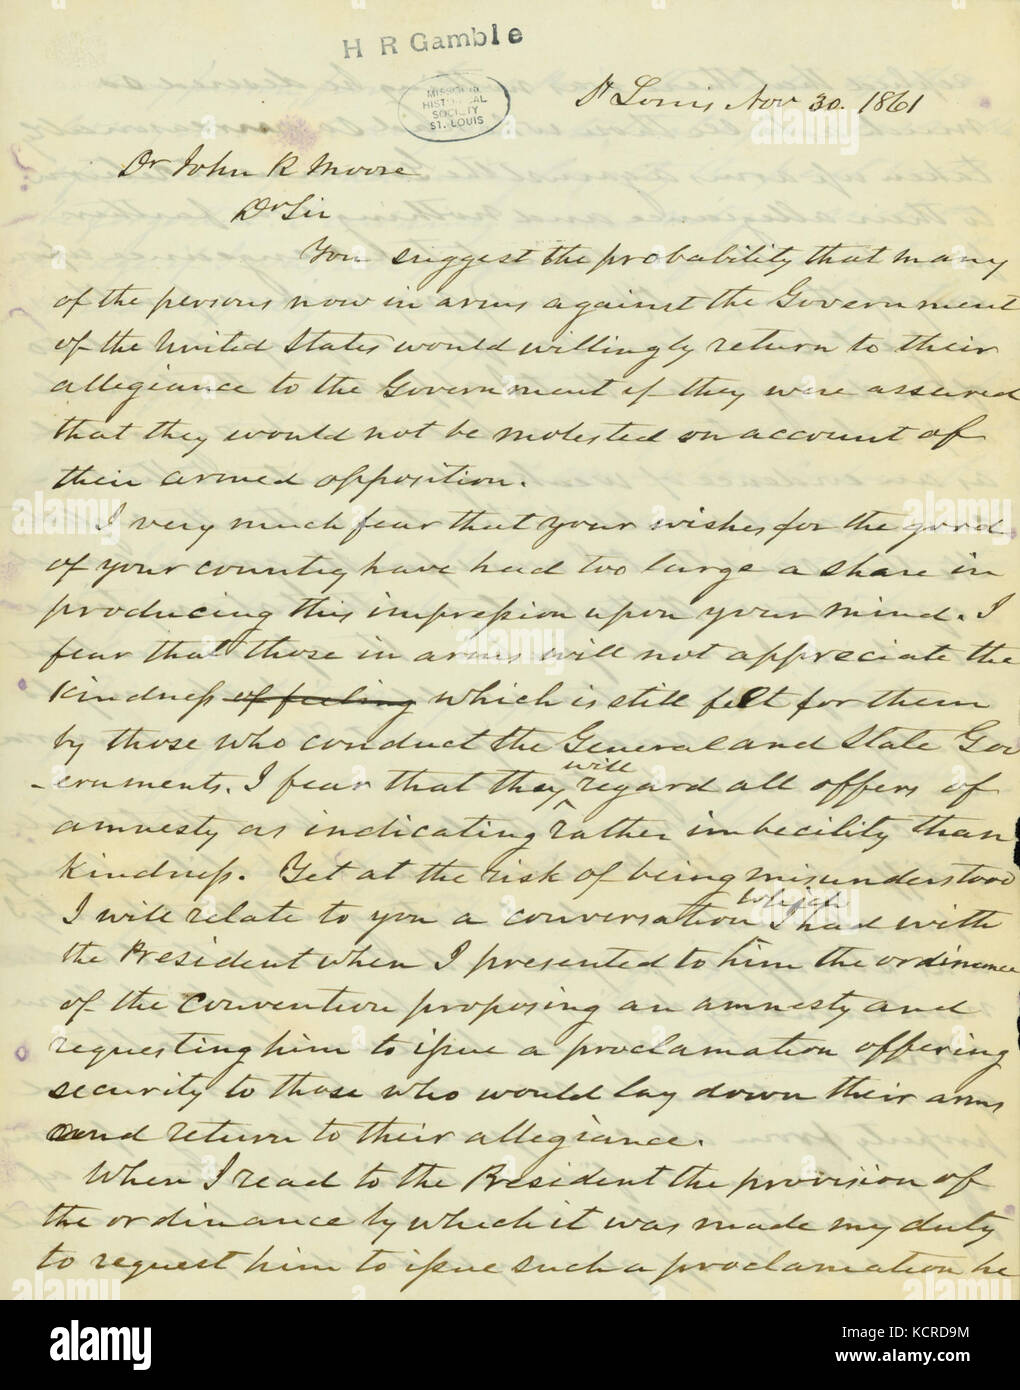 H R Gamble
MISSOURI
HISTORICAL
SOCIETY
ST. LOUIS
St Louis Nov 30. 1861
Dr John R Moore
Dr Sir
You suggest the probability that many
of the persons now in arms against the Government
of the United States would willingly return to their
allegiance to the Government if they were assured
that they would not be molested on account of
their armed opposition.
I very much fear that your wishes for the good
of your country have had too large a share in
producing this impression upon your mind. I
fear that those in arms will not appreciate the
kindness of feeling which is still felt for them
by those who conduct the General and State Gov
-ernments. I fear that they will regard all offers of
amnesty as indicating rather imbecility than
kindness. Yet at the risk of being misunderstood
I will relate to you a conversation which I had with
the President when I presented to him the ordinance
of the convention proposing an amnesty and
requesting him to issue a proclamation offering
security to those who would lay down their arms
and return to their allegiance.
When I read to the President the provision of
the ordinance by which it was made my duty
to request him to issue such a proclamation he
alamy
alamy
Image ID: KCRD9M
www.alamy.com